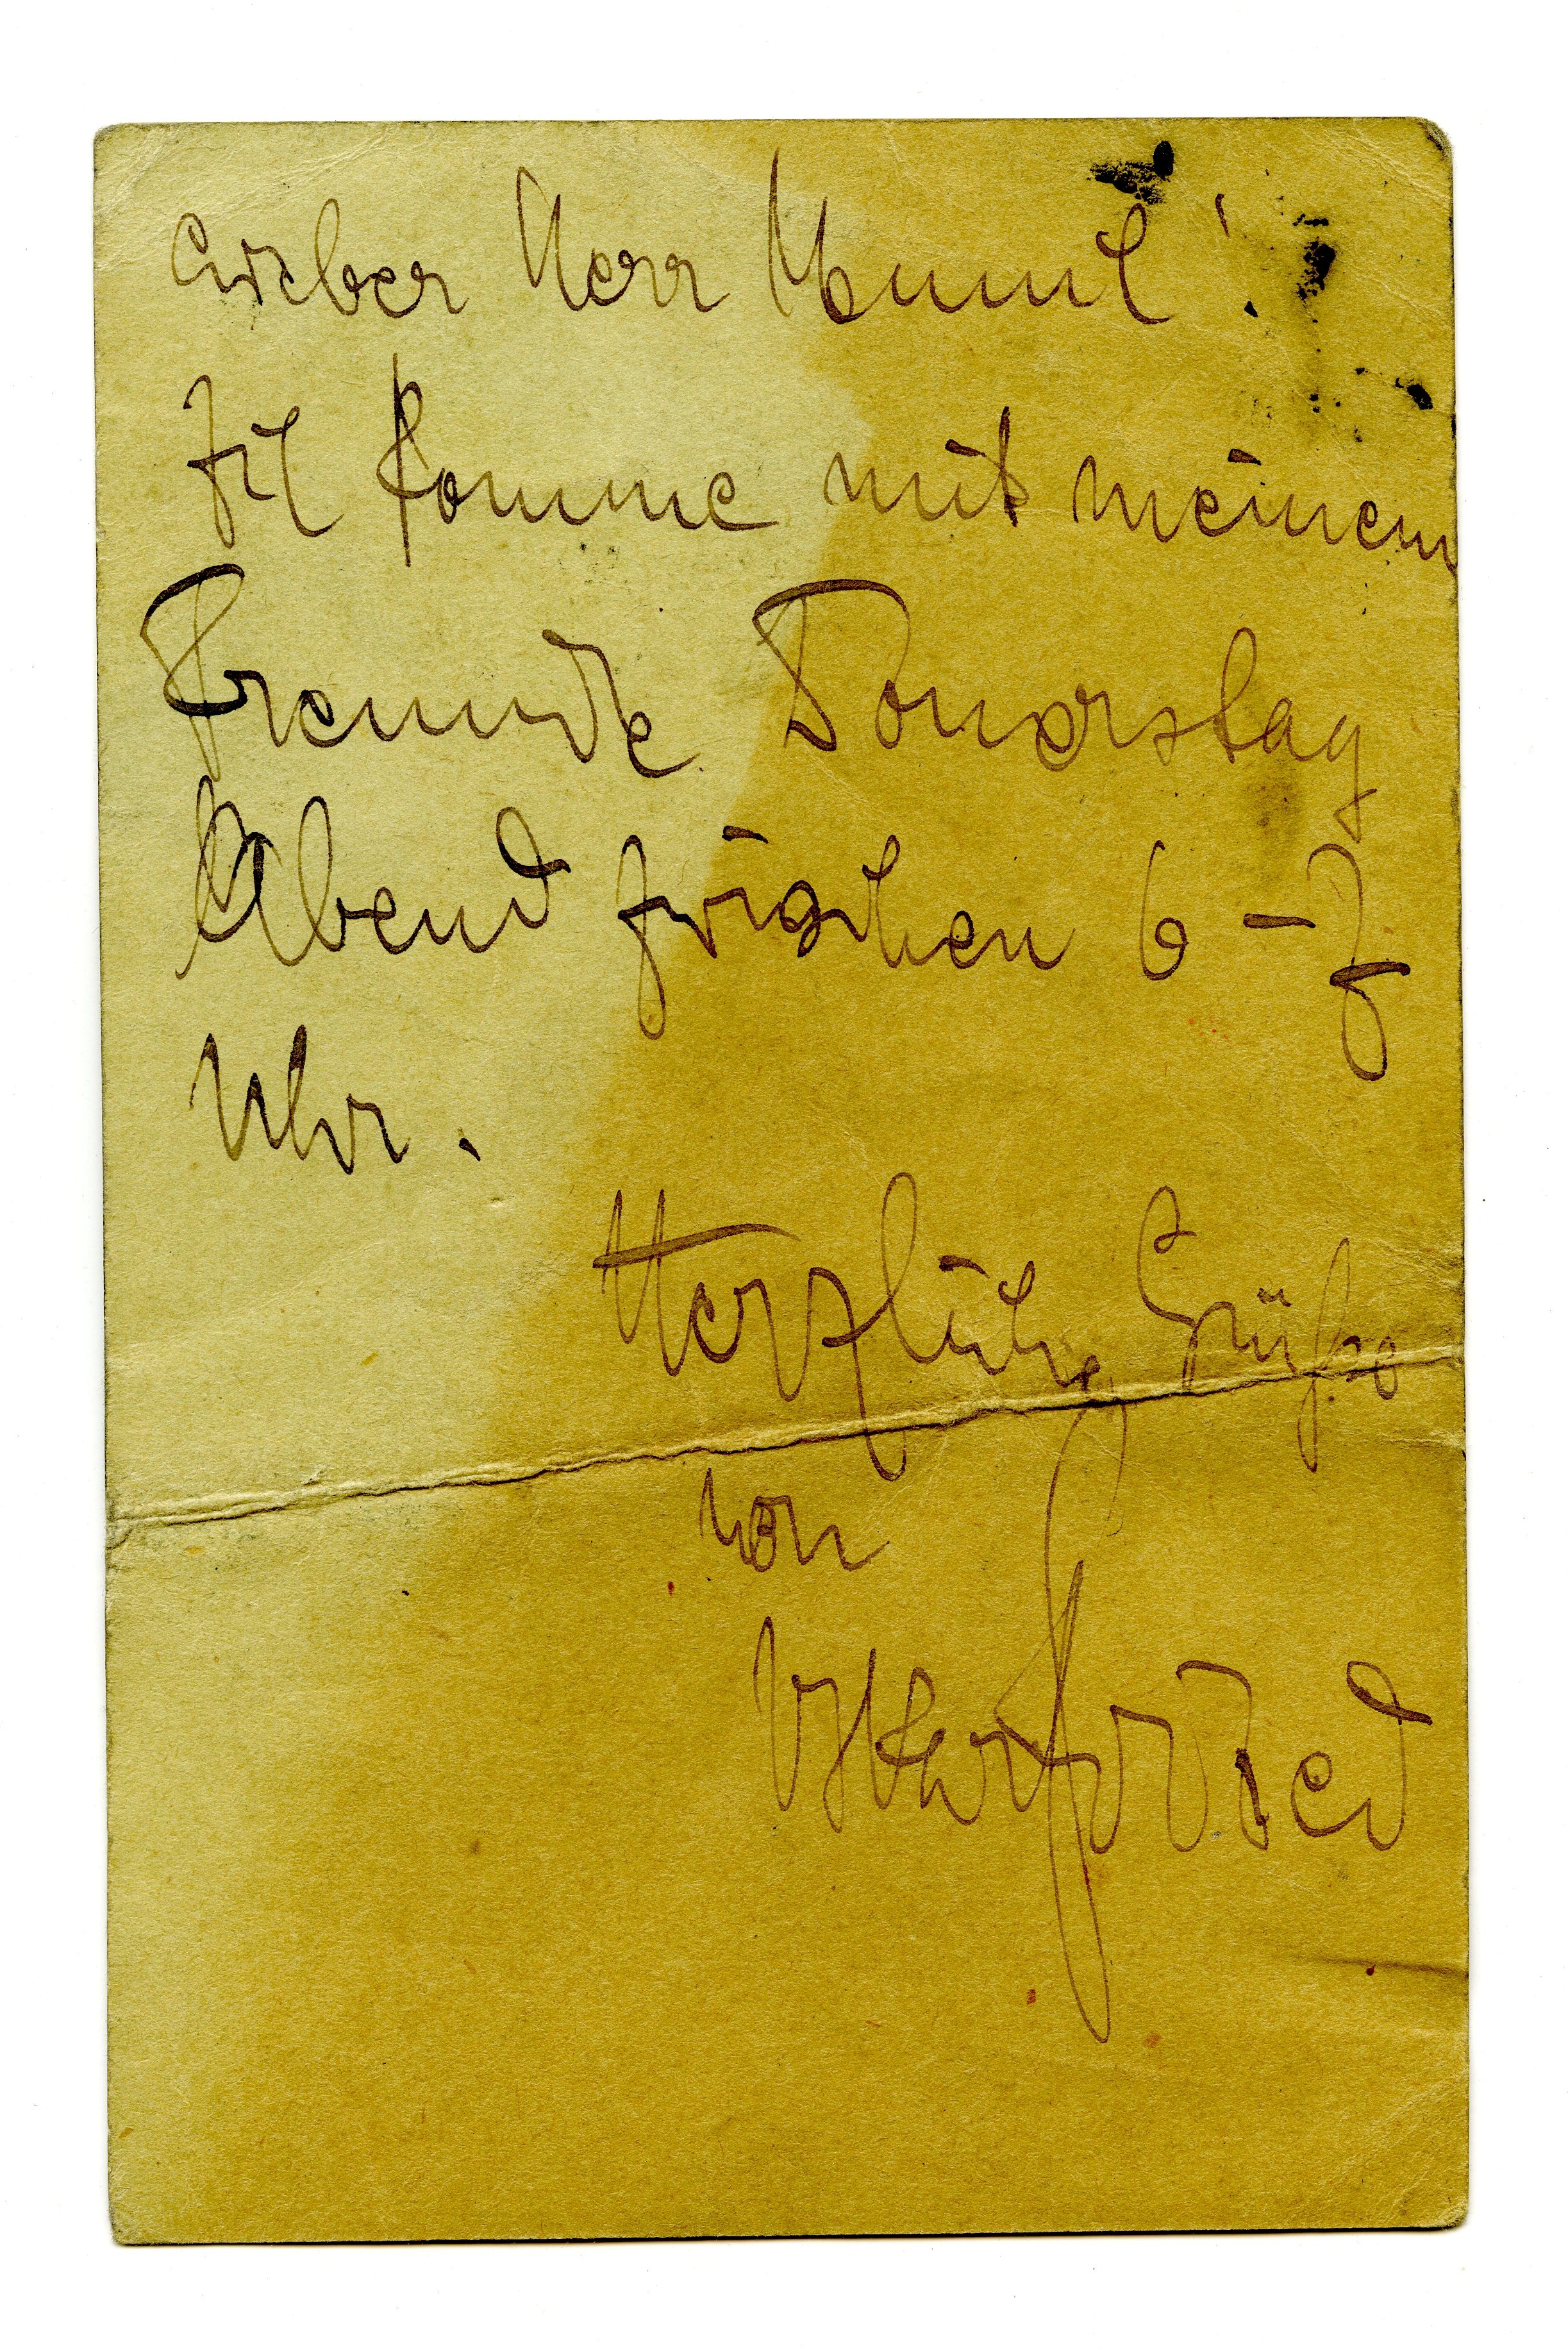 Lieber Herr Munch!
Ich komme mit meinem
Freunde Donerstag
Abend zwischen 6 - 7
Uhr.
Herzliche Grüße
von
Oskar Fried